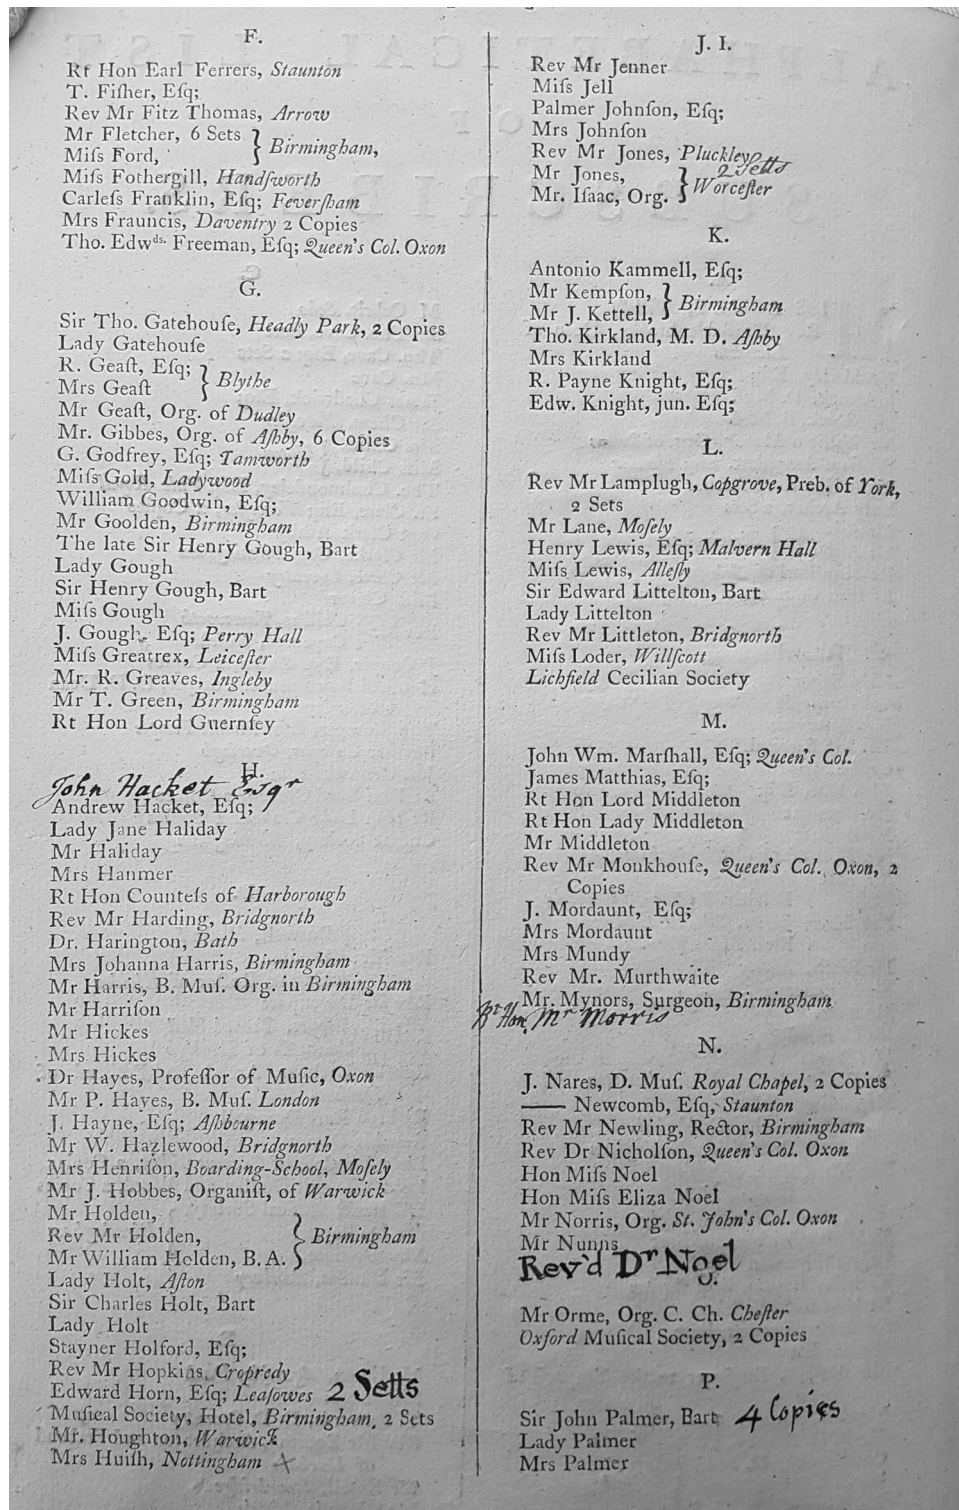 F.
Rt Hon Earl Ferrers, Staunton
T. Fiſher, Eſq;
Rev Mr Fitz Thomas, Arrow
Mr Fletcher, 6 Sets
Miſs Ford,
} Birmingham,
Miſs Fothergill, Handſworth
Carleſs Franklin, Eſq; Feverſham
Mrs Frauncis, Daventry 2 Copies
Tho. Edwds. Freeman, Eſq; Queen's Col. Oxon
G.
Sir Tho. Gatehouſe, Headly Park, 2 Copies
Lady Gatehouſe
R. Geaſt, Eſq;
Mrs Geaſt
} Blythe
Mr Geaſt, Org. of Dudley
Mr. Gibbes, Org. of Aſhby, 6 Copies
G. Godfrey, Eſq; Tamworth
Miſs Gold, Ladywood
William Goodwin, Eſq;
Mr Goolden, Birmingham
The late Sir Henry Gough, Bart
Lady Gough
Sir Henry Gough, Bart
Miſs Gough
J. Gough, Eſq; Perry Hall
Miſs Greatrex, Leiceſter
Mr. R. Greaves, Ingleby
Mr T. Green, Birmingham
Rt Hon Lord Guernſey
H.
John Hacket Esqr
Andrew Hacket, Eſq;
Lady Jane Haliday
Mr Haliday
Mrs Hanmer
Rt Hon Counteſs of Harborough
Rev Mr Harding, Bridgnorth
Dr. Harington, Bath
Mrs Johanna Harris, Birmingham
Mr Harris, B. Muſ. Org. in Birmingham
Mr Harriſon
Mr Hickes
Mrs Hickes
Dr Hayes, Profeſſor of Muſic, Oxon
Mr P. Hayes, B. Muſ. London
J. Hayne, Eſq; Aſhbourne
Mr W. Hazlewood, Bridgnorth
Mrs Henriſon, Boarding-School, Moſely
Mr J. Hobbes, Organiſt, of Warwick
Mr Holden,
Rev Mr Holden,
Mr William Holden, B. A.
} Birmingham
Lady Holt, Aſton
Sir Charles Holt, Bart
Lady Holt
Stayner Holford, Eſq;
Rev Mr Hopkins, Cropredy
Edward Horn, Eſq; Leaſowes 2 Setts
Muſical Society, Hotel, Birmingham, 2 Sets
Mr. Houghton, Warwick
Mrs Huiſh, Nottingham
J. I.
Rev Mr Jenner
Miſs Jell
Palmer Johnſon, Eſq;
Mrs Johnſon
Rev Mr Jones, Pluckley
2 Setts
Mr Jones,
Mr. Iſaac, Org.
} Worceſter
K.
Antonio Kammell, Eſq;
Mr Kempſon,
Mr J. Kettell,
} Birmingham
Tho. Kirkland, M. D. Aſhby
Mrs Kirkland
R. Payne Knight, Eſq;
Edw. Knight, jun. Eſq;
L.
Rev Mr Lamplugh, Copgrove, Preb. of York,
2 Sets
Mr Lane, Moſely
Henry Lewis, Eſq; Malvern Hall
Miſs Lewis, Alleſly
Sir Edward Littelton, Bart
Lady Littelton
Rev Mr Littleton, Bridgnorth
Miſs Loder, Willſcott
Lichfield Cecilian Society
M.
John Wm. Marſhall, Eſq; Queen's Col.
James Matthias, Eſq;
Rt Hon Lord Middleton
Rt Hon Lady Middleton
Mr Middleton
Rev Mr Monkhouſe, Queen's Col. Oxon, 2
Copies
J. Mordaunt, Eſq;
Mrs Mordaunt
Mrs Mundy
Rev Mr. Murthwaite
Mr. Mynors, Surgeon, Birmingham
Rt Hon. Mr Morris
N.
J. Nares, D. Muſ. Royal Chapel, 2 Copies
—— Newcomb, Eſq, Staunton
Rev Mr Newling, Rector, Birmingham
Rev Dr Nicholſon, Queen's Col. Oxon
Hon Miſs Noel
Hon Miſs Eliza Noel
Mr Norris, Org. St. John's Col. Oxon
Mr Nunns
Rev'd Dr Noel
O.
Mr Orme, Org. C. Ch. Cheſter
Oxford Muſical Society, 2 Copies
P.
Sir John Palmer, Bart 4 Copies
Lady Palmer
Mrs Palmer